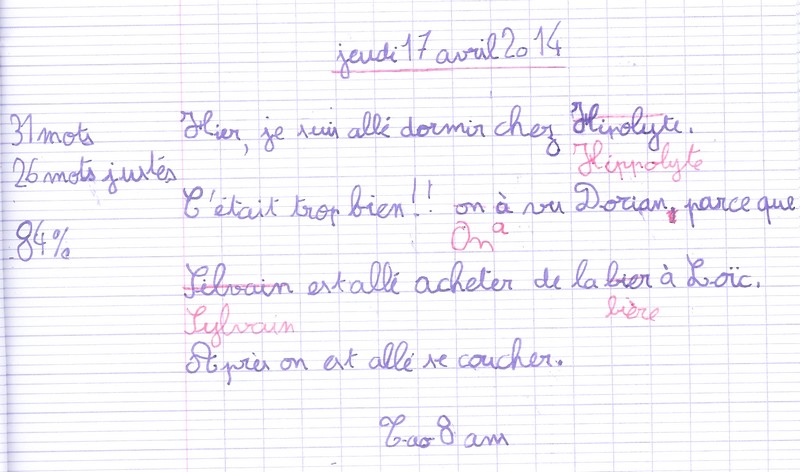 jeudi 17 avril 2014
31 mots
Hier, je suis allé dormir chez Hipolyte.
Hippolyte
26 mots justes
C'était trop bien!! on à vu Dorian, parce que
On a
84%
Silvain est allé acheter de la bier à Loïc.
Sylvain
bière
Après on est allé se coucher.
Tao 8 ans